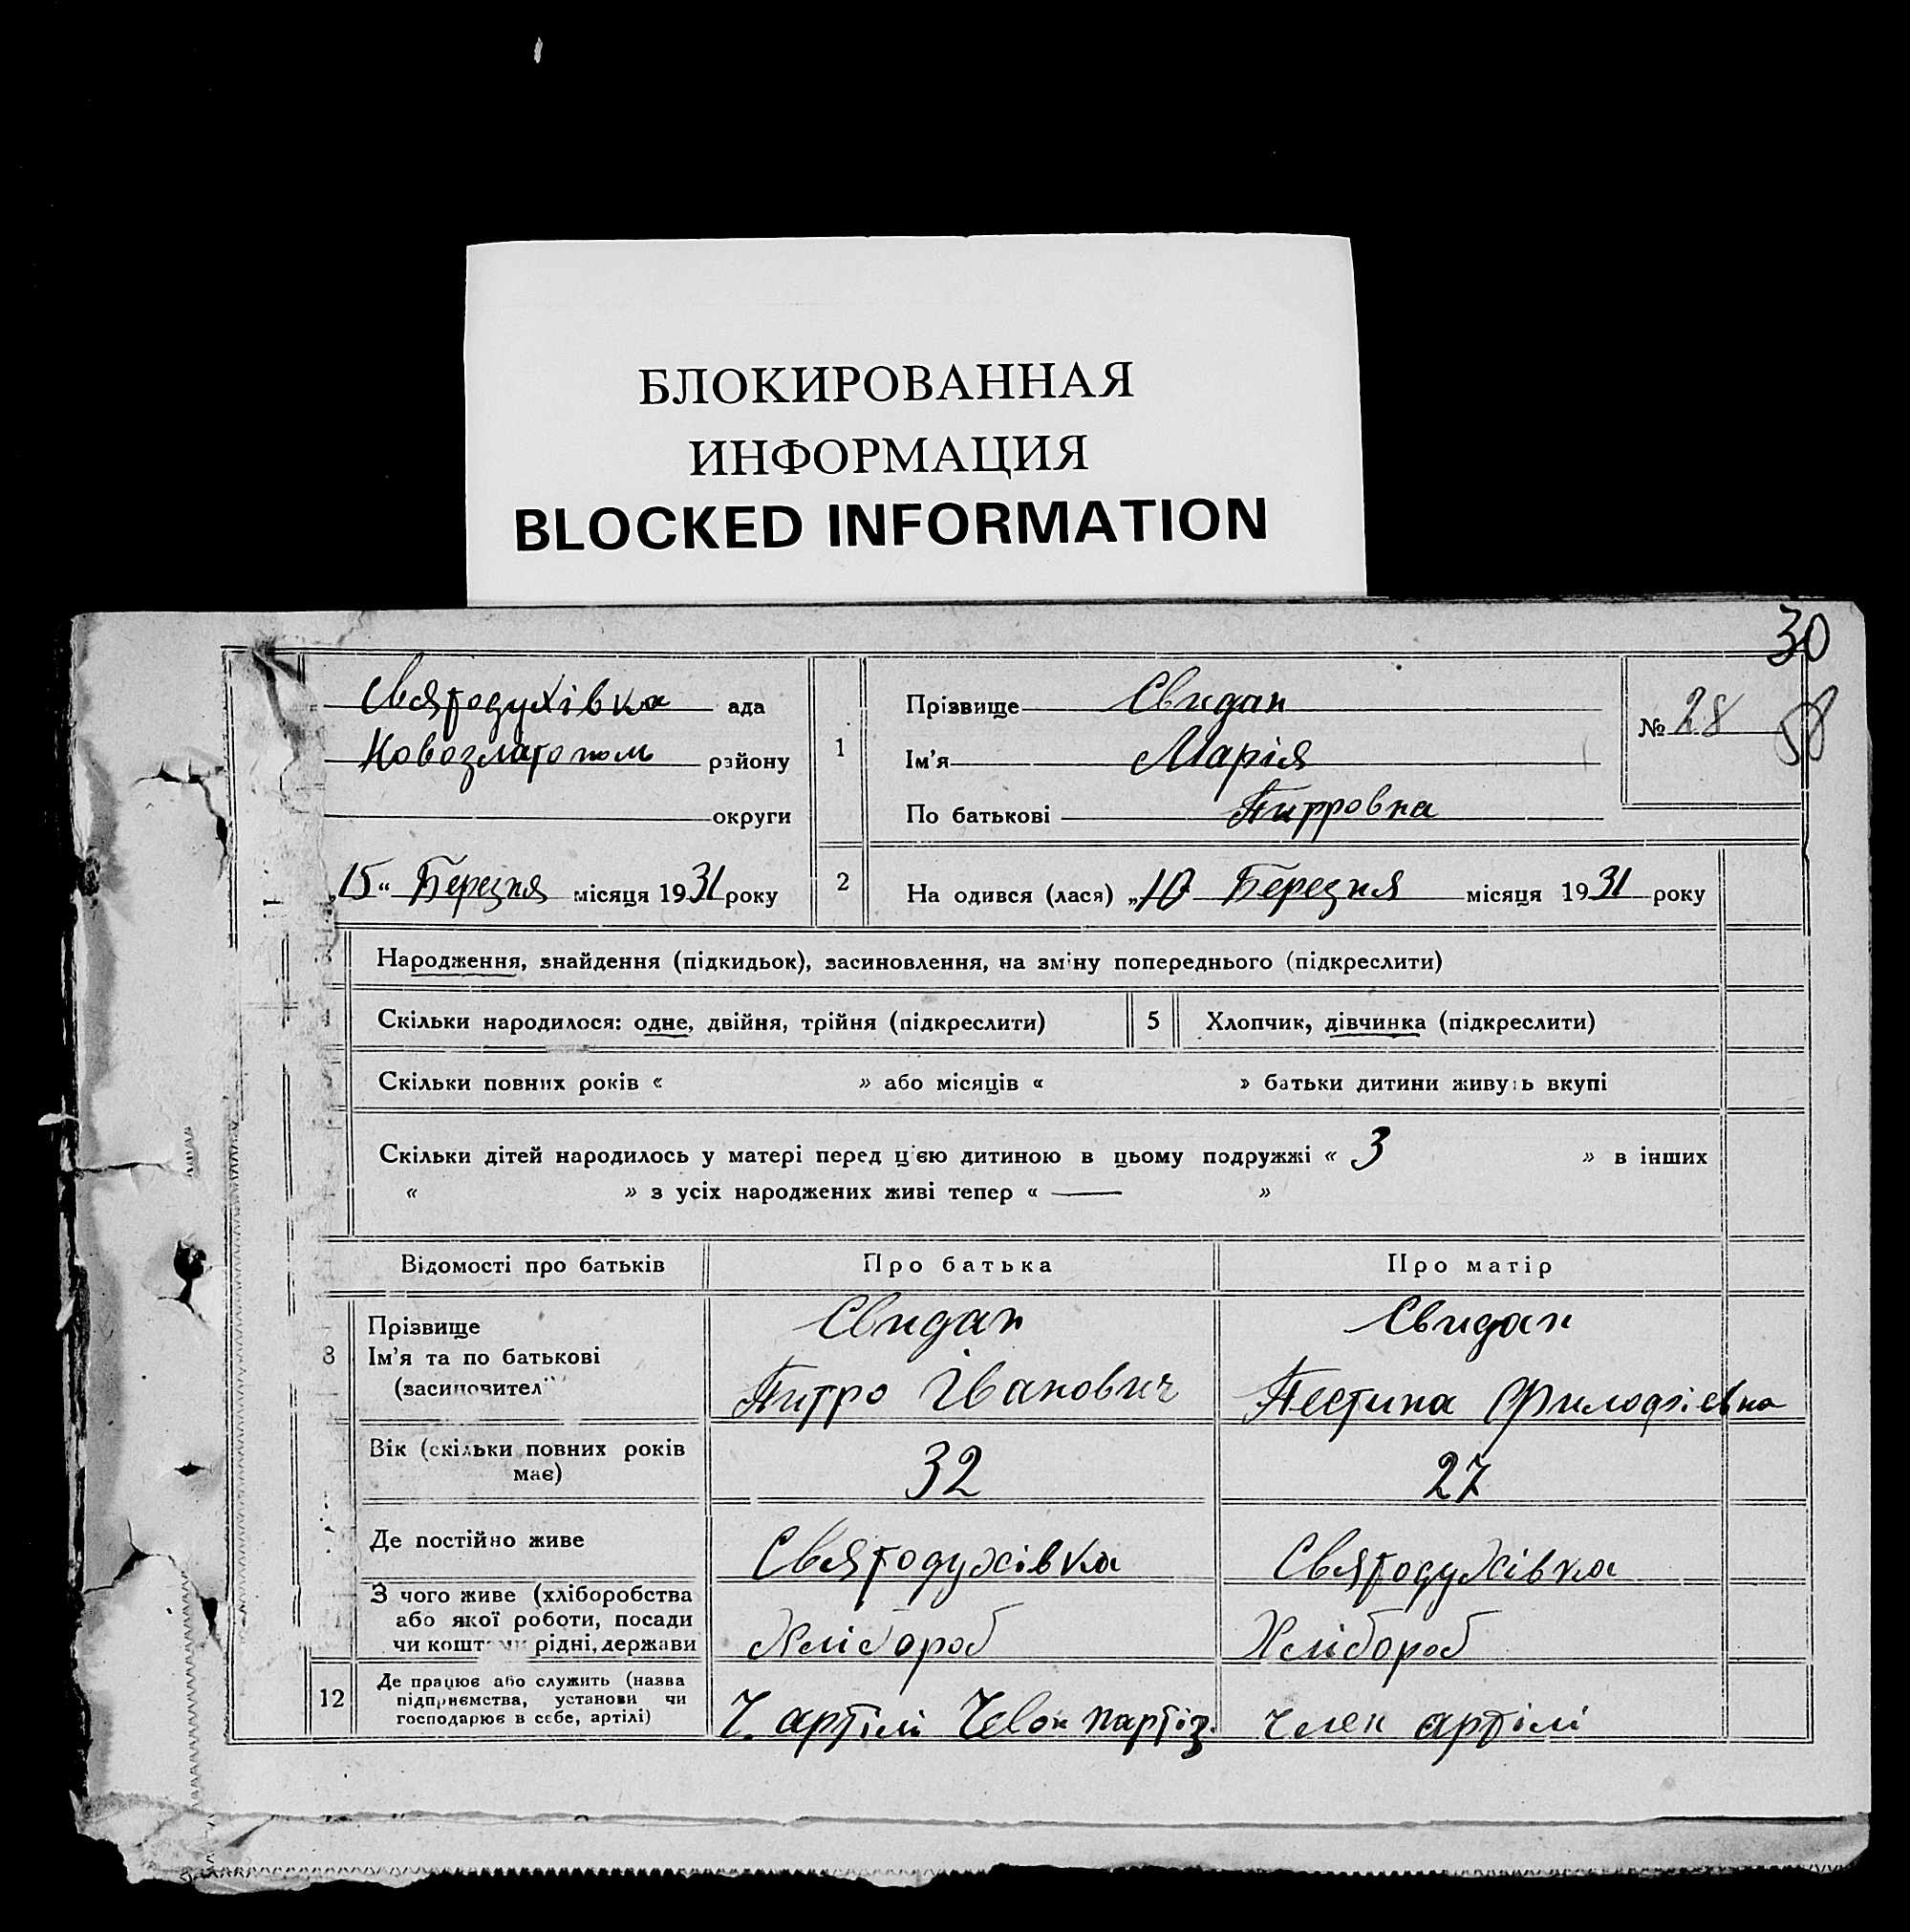 БЛОКИРОВАННАЯ
ИНФОРМАЦИЯ
BLOCKED INFORMATION
30
Святодухівка ада
Новозлатополь району
округи
„15“ Березня місяця 1931 року
1
Прізвище Свидан
Ім'я Марія
По батькові Питровна
№ 28
58
2
На одився (лася) „10 Березня місяця 1931 року
Народження, знайдення (підкидьок), засиновлення, на зміну попереднього (підкреслити)
Скільки народилося: одне, двійня, трійня (підкреслити) 5 Хлопчик, дівчинка (підкреслити)
Скільки повних років « » або місяців « » батьки дитини живуть вкупі
Скільки дітей народилось у матері перед цією дитиною в цьому подружжі « 3 » в інших
« » з усіх народжених живі тепер « — »
Відомості про батьків Про батька Про матір
8
Прізвище
Ім'я та по батькові
(засиновител
Свидан
Питро Іванович
Свидан
Пестина
Вік (скільки повних років
має)
32
27
Де постійно живе Святодухівка Святодухівка
З чого живе (хліборобства
або якої роботи, посади
чи коштами рідні, держави
Хлібороб
Хлібороб
12
Де працює або служить (назва
підприємства, установи чи
господарює в себе, артілі)
Ч. артілі Чевон партіз.
член артілі